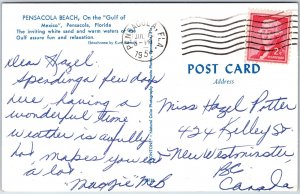 PENSACOLA BEACH, On the "Gulf of
Mexico", Pensacola, Florida
The inviting white sand and warm waters of the
Gulf assure fun and relaxation.
PENSACOLA, FLA.
1954
Dear Hazel
Spending a few days
here having a
wonderful time
weather is awfully
hot makes you eat
a lot
Maggie McB
POST CARD
Address
Miss Hazel Potter
424 Kelley St.
New Westminster
BC
Canada